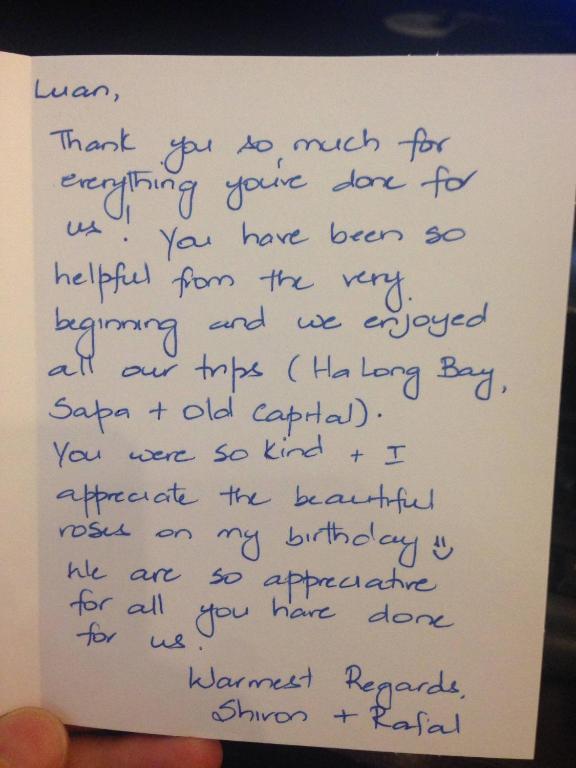 Luan,
Thank you so much for
everything you've done for
us! You have been so
helpful from the very
beginning and we enjoyed
all our trips (Ha Long Bay,
Sapa + Old Capital).
You were so kind + I
appreciate the beautiful
roses on my birthday
We are so appreciative
for all you have done
for us.
Warmest Regards,
Shiron + Rafal